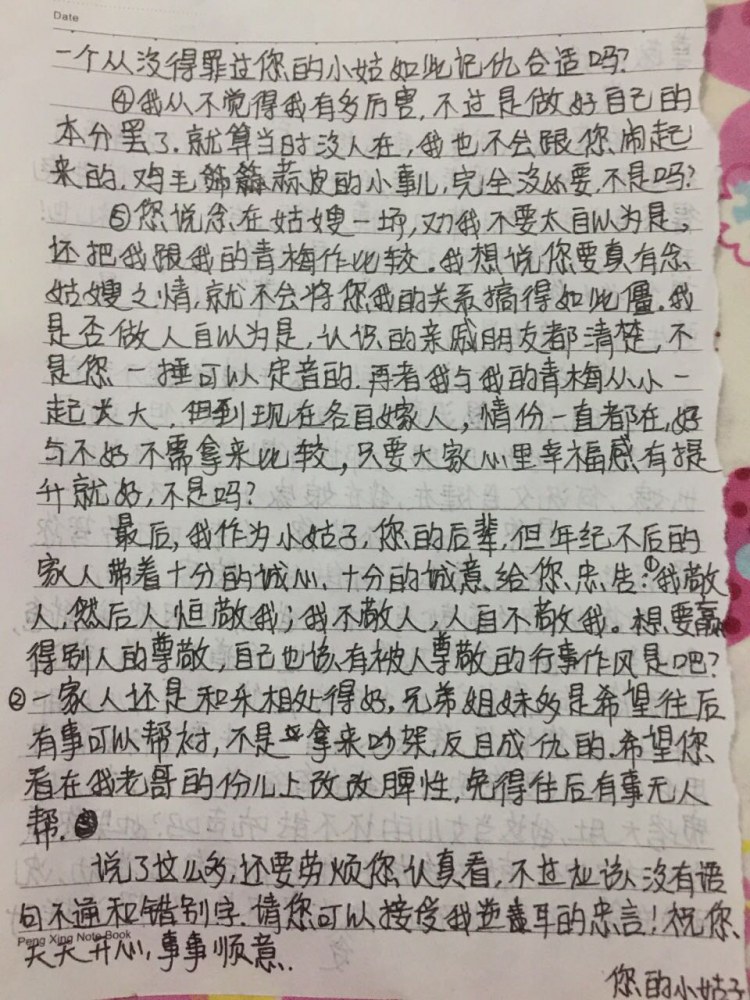 Date
一个从没得罪过您的小姑如此记仇合适吗?
④我从不觉得我有多厉害,不过是做好自己的
本分罢了.就算当时没人在,我也不会跟您闹起
来的,鸡毛蒜皮的小事儿,完全没必要,不是吗?
⑤您说念在姑嫂一场,劝我不要太自以为是,
还把我跟我的青梅作比较.我想说您要真有念
姑嫂之情,就不会将您我的关系搞得如此僵.我
是否做人自以为是,认识的亲戚朋友都清楚,不
是您一捶可以定音的.再者我与我的青梅从小一
起长大,但到现在各自嫁人,情份一直都在,好
与不好不需拿来比较,只要大家心里幸福感有提
升就好,不是吗?
最后,我作为小姑子,您的后辈,但年纪不后的
家人带着十分的诚心、十分的诚意给您忠告:①我敬
人,然后人恒敬我;我不敬人,人自不敬我。想要赢
得别人的尊敬,自己也该有被人尊敬的行事作风是吧?
②一家人还是和乐相处得好,兄弟姐妹多是希望往后
有事可以帮衬,不是拿来吵架,反目成仇的.希望您
看在我老哥的份儿上改改脾性,免得往后有事无人
帮.
说了这么多,还要劳烦您认真看,不过应该没有语
句不通和错别字.请您可以接受我逆耳的忠言!祝您
Peng Xing Note Book
天天开心,事事顺意.
您的小姑子